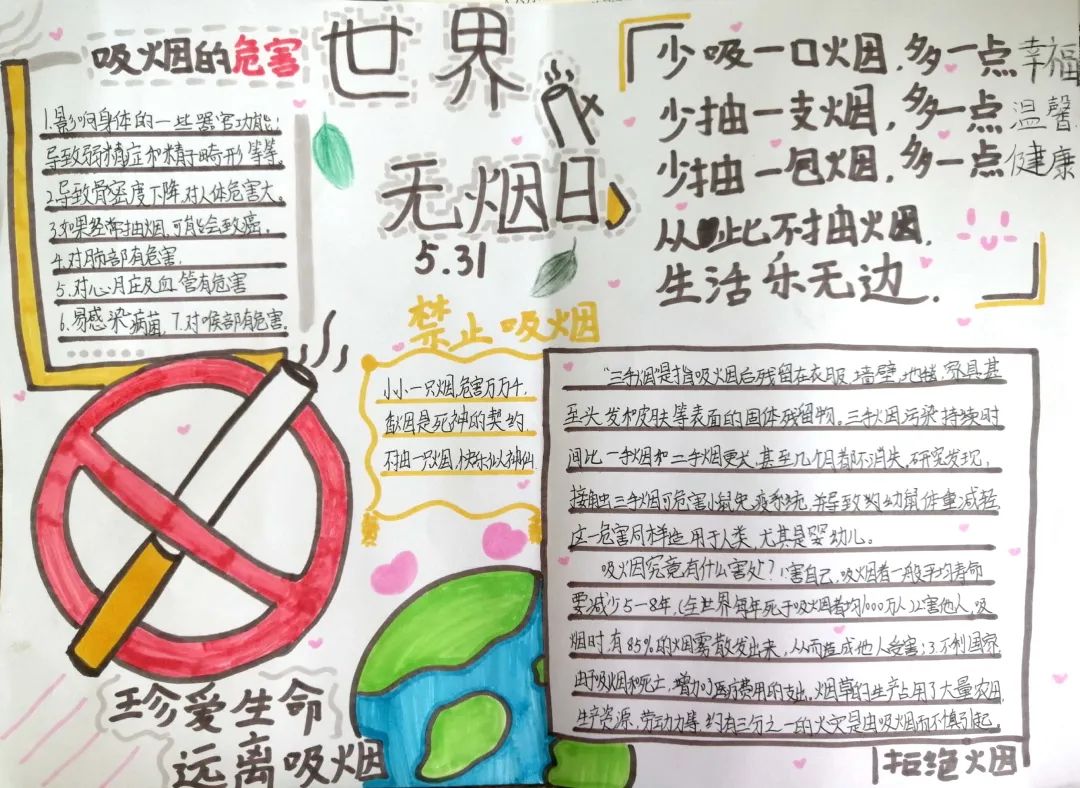 吸烟的危害
1.影响身体的一些器官功能;
导致弱精症和精子畸形等等.
2.导致骨密度下降,对人体危害大。
3.如果经常抽烟,可能会致癌.
4.对肺部有危害.
5.对心脏及血管有危害
6.易感染病菌, 7.对喉部有危害.
世界
无烟日
5.31
少吸一口烟,多一点幸福
少抽一支烟,多一点温馨
少抽一包烟,多一点健康
从此不抽烟,
生活乐无边.
禁止吸烟
小小一只烟,危害万万千.
香烟是死神的契约.
不抽一只烟,快乐似神仙.
"三手烟"是指吸烟后残留在衣服、墙壁、地毯、家具甚
至头发和皮肤等表面的固体残留物。三手烟污染持续时
间比一手烟和二手烟更久,甚至几个月都不消失,研究发现,
接触三手烟可危害小鼠免疫系统,并导致幼鼠体重减轻
这一危害同样适用于人类,尤其是婴幼儿。
吸烟究竟有什么害处?1害自己,吸烟者一般平均寿命
要减少5-8年,(全世界每年死于吸烟者均600万人)2.害他人,吸
烟时有85%的烟雾散发出来,从而造成他人受害;3.不利国家
由于吸烟和死亡,增加了医疗费用的支出,烟草的生产占用了大量农田
生产资源、劳动力等,约有三分之一的火灾是由吸烟而不慎引起.
珍爱生命
远离吸烟
拒绝烟